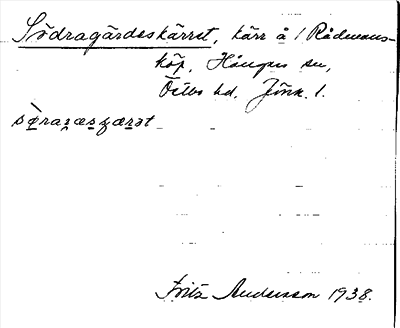 Södragärdeskärret, kärr å 1 Rådmans-
köp, Hånger sn,
Östbo hd. Jönk. l.
sø̀raɟæsçærət
Fritz Andersson 1938.